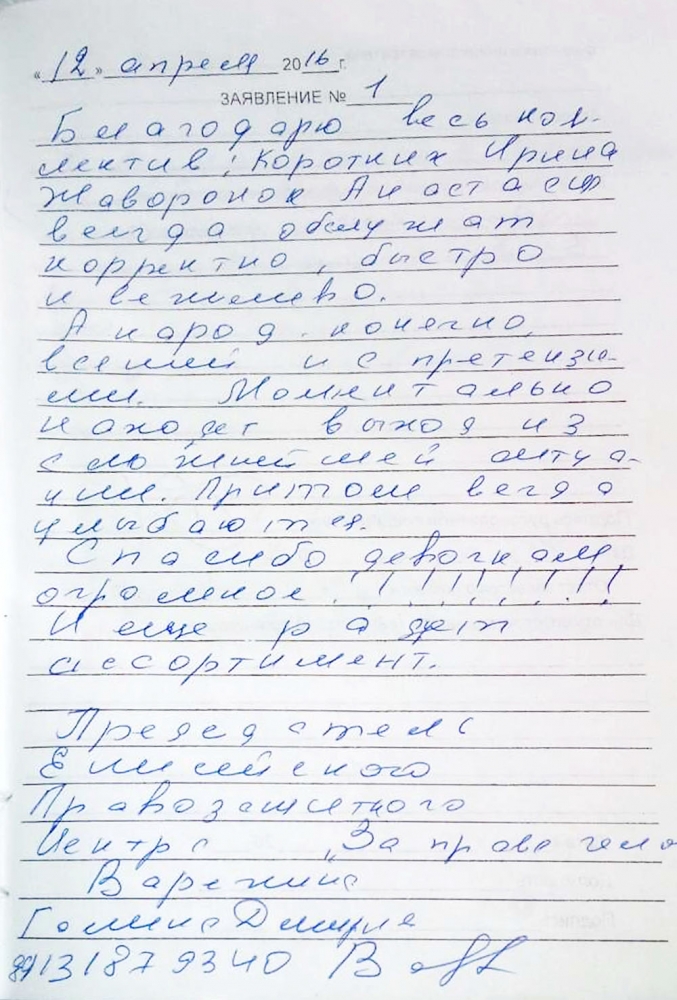 «12» апреля 2016 г.
ЗАЯВЛЕНИЕ № 1
Благодарю весь кол-
лектив: Коротких Ирина
Жаворонок Анастасия
всегда обслужат
корректно, быстро
и вежливо.
А народ конечно,
всякий и с претензи-
ями. Моментально
находят выход из
сложнейшей ситуа-
ции. Притом всегда
улыбаются.
Спасибо девочкам
огромное !!!!!!!!!
И еще радует
ассортимент.
Председатель
Правозащитного
Центра „За права чело
Варежкина
Галина
89131879340